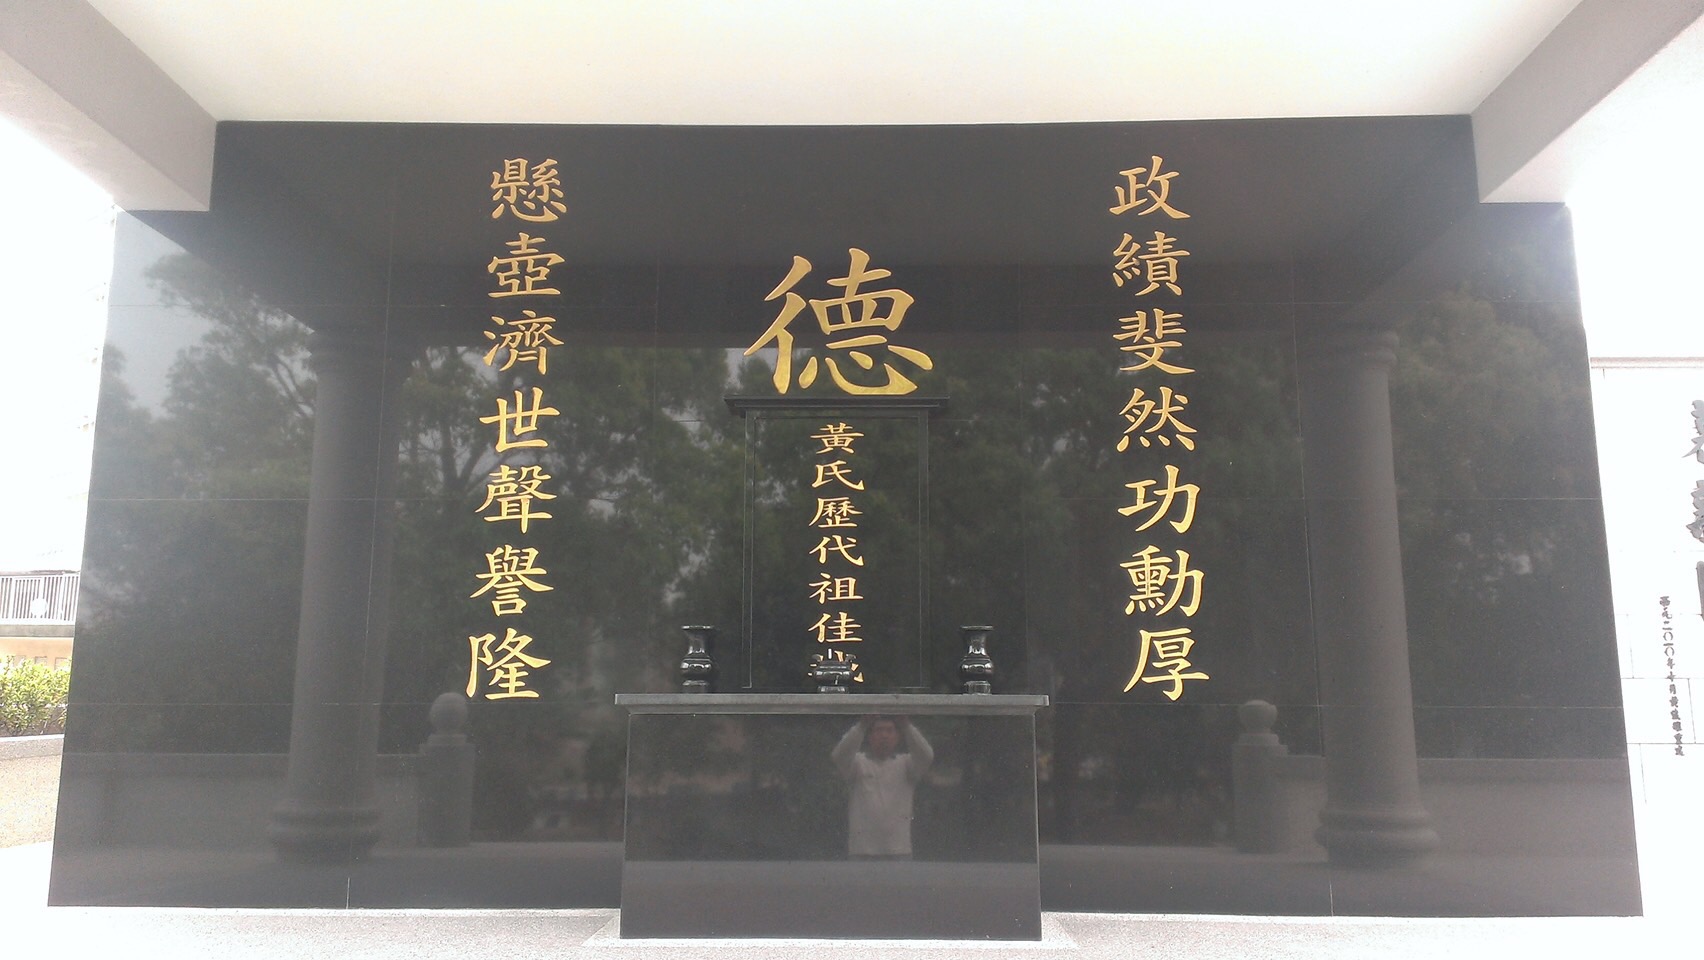 政績斐然功勳厚
德
黃氏歷代祖佳城
懸壺濟世聲譽隆
西元二〇一〇年十月